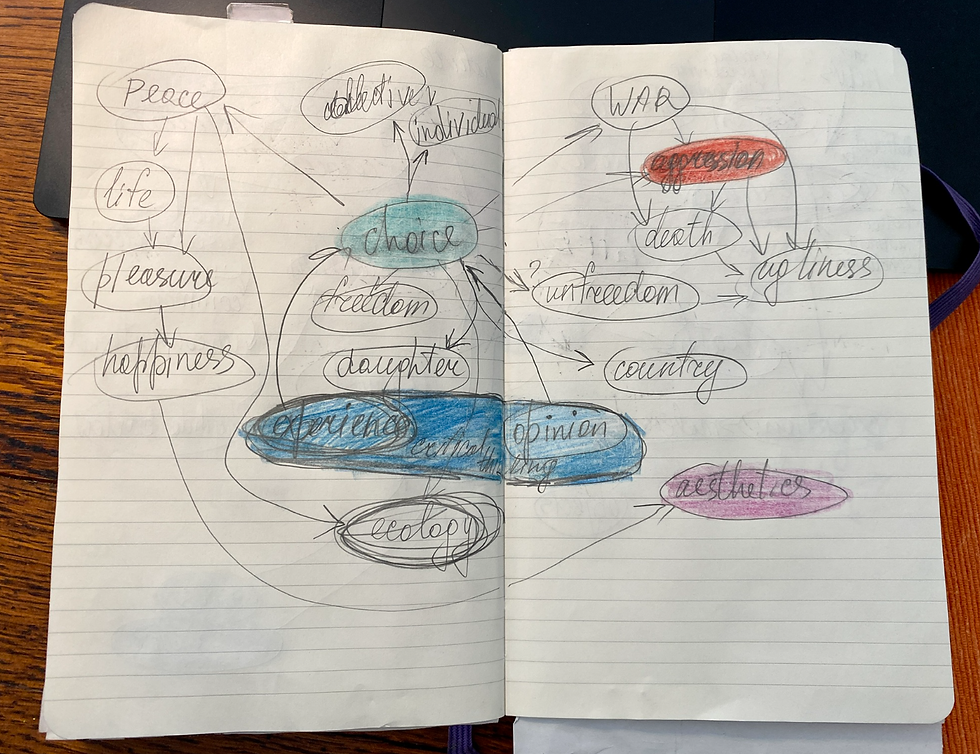 Peace
collective
individual
life
choice
pleasure
freedom
happiness
daughter
experience
critical
thinking
ecology
WAR
aggression
death
ugliness
?
unfreedom
country
opinion
aesthetics